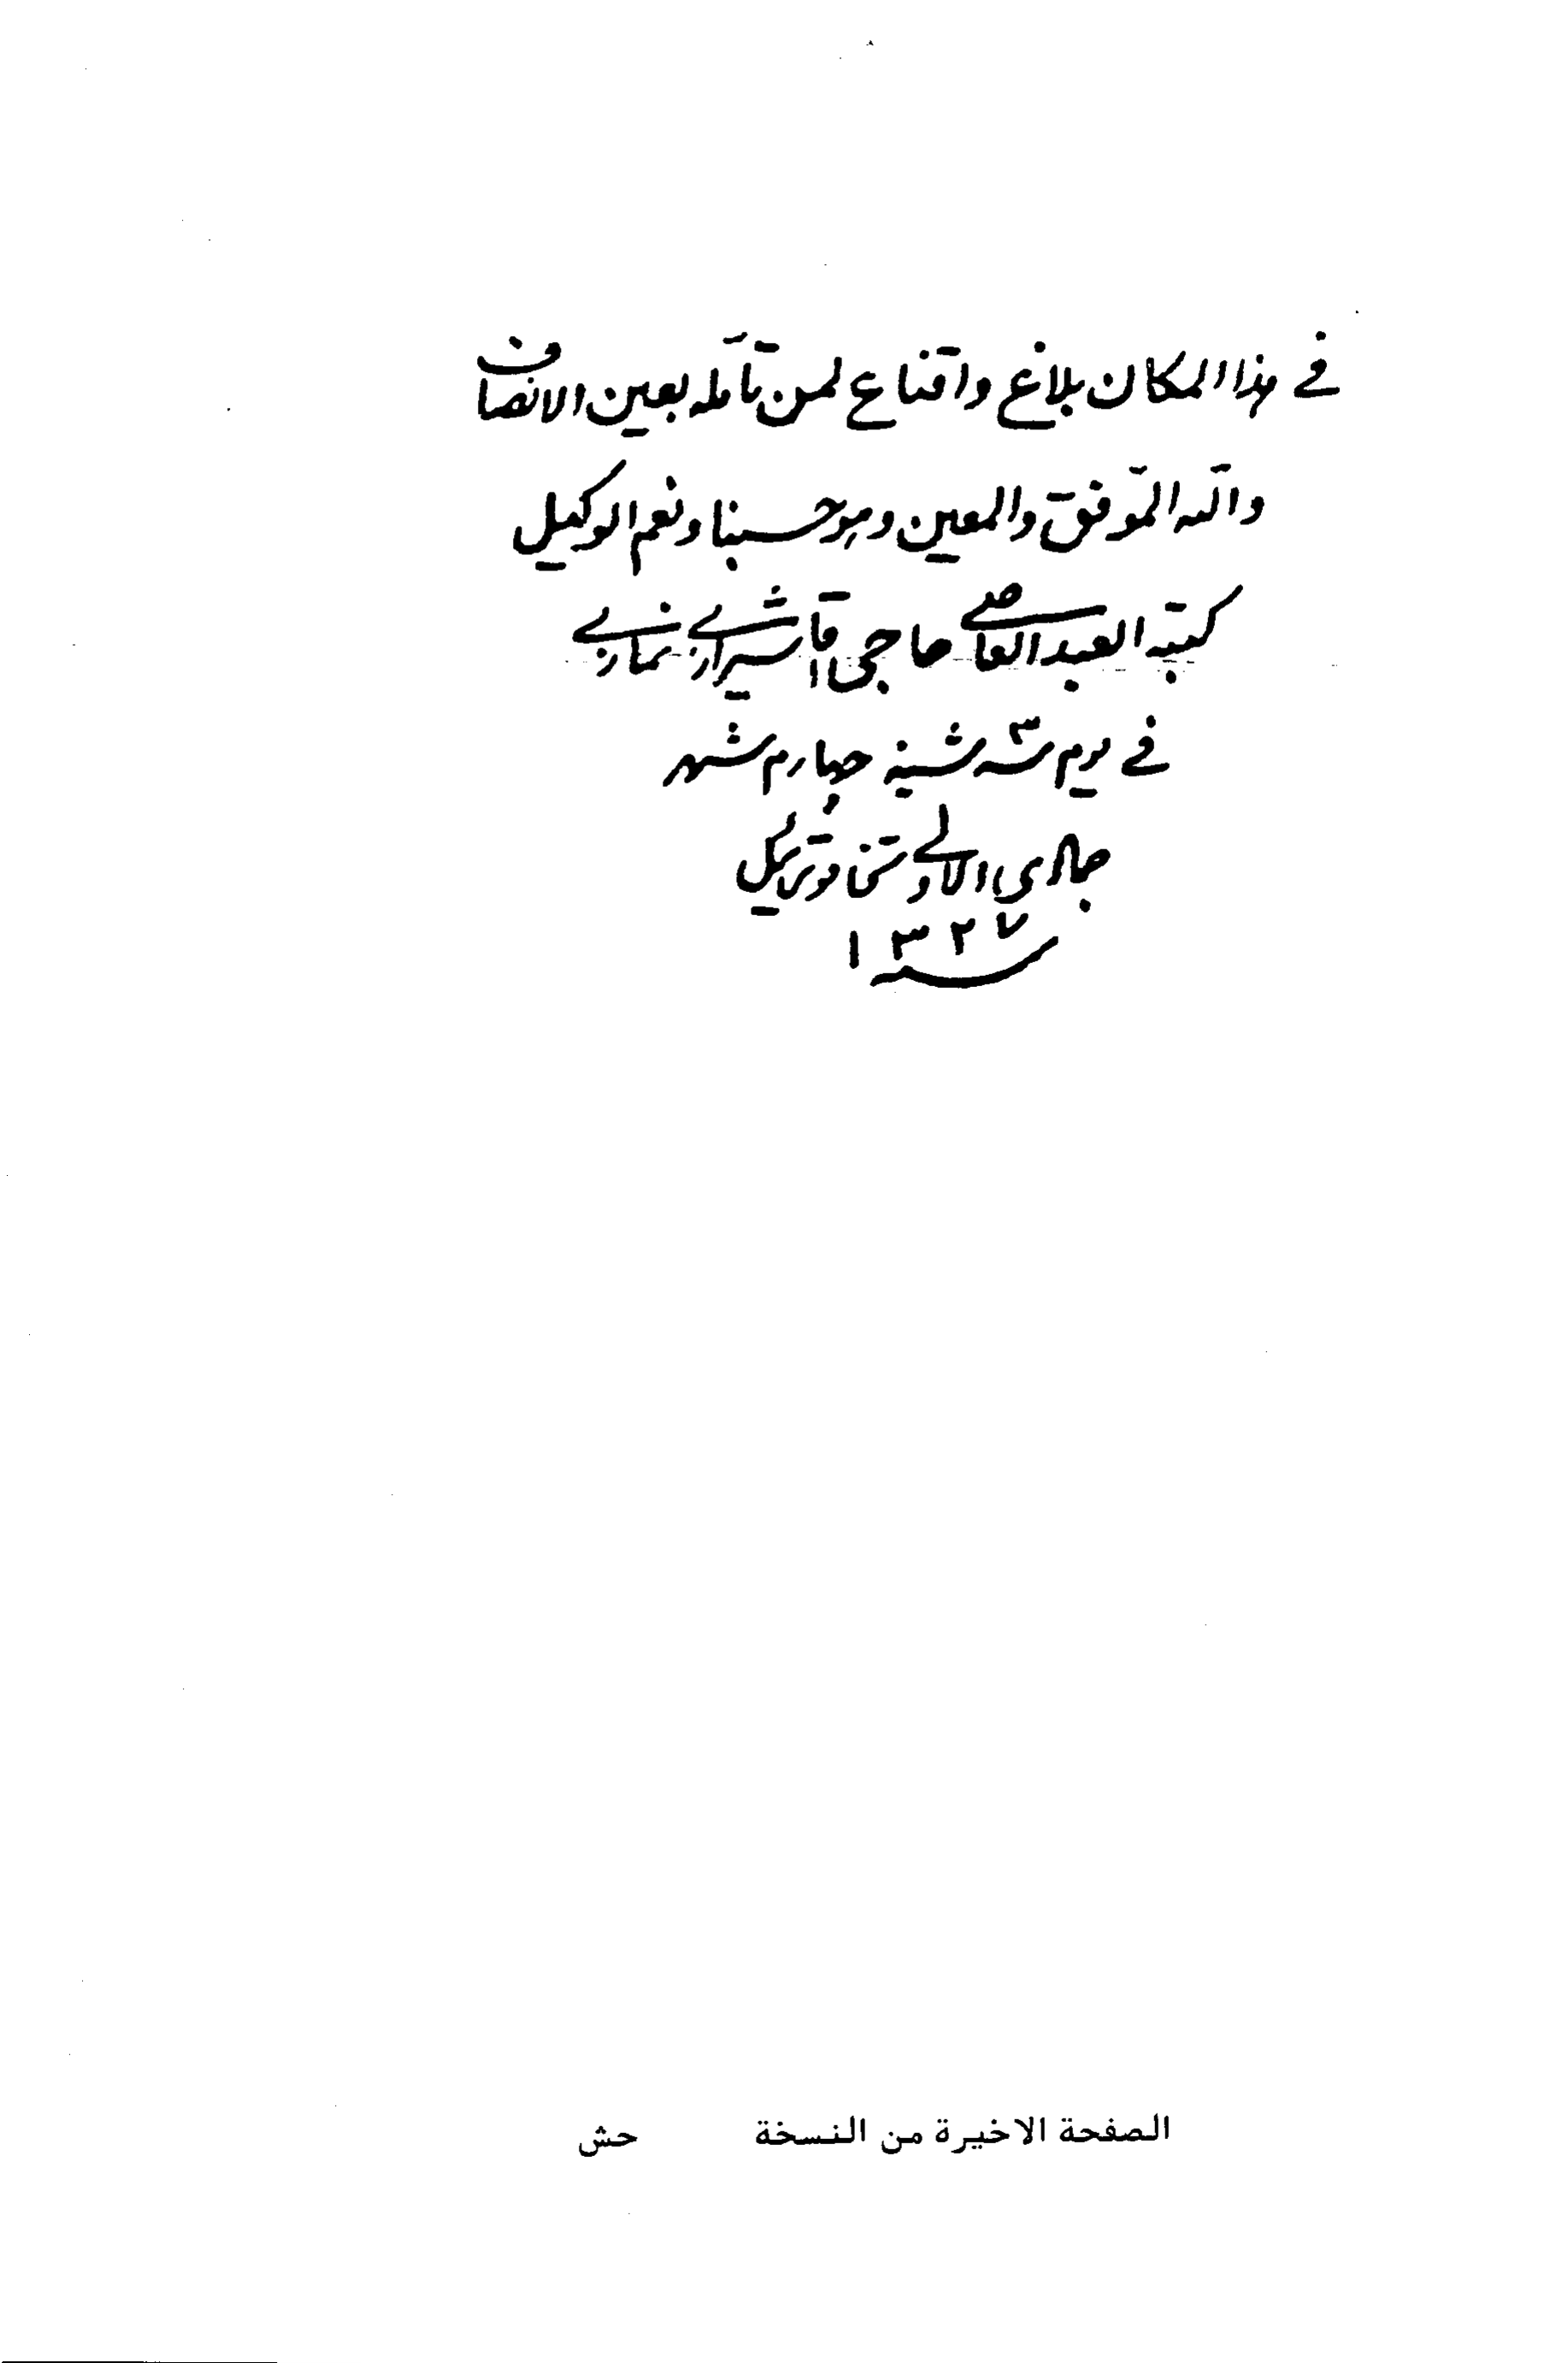 في هذا المكان بلاغ واقناع لمن تأمله بعين الانصاف
والله الموفق والمعين وهو حسبنا ونعم الوكيل
كتبه العبد العاصي حاجي اقا شيرازي نمازي
في يوم سه شنبه چهارم شهر
جمادي الاولي
۱۳۲۷
الصفحة الاخيرة من النسخة حش